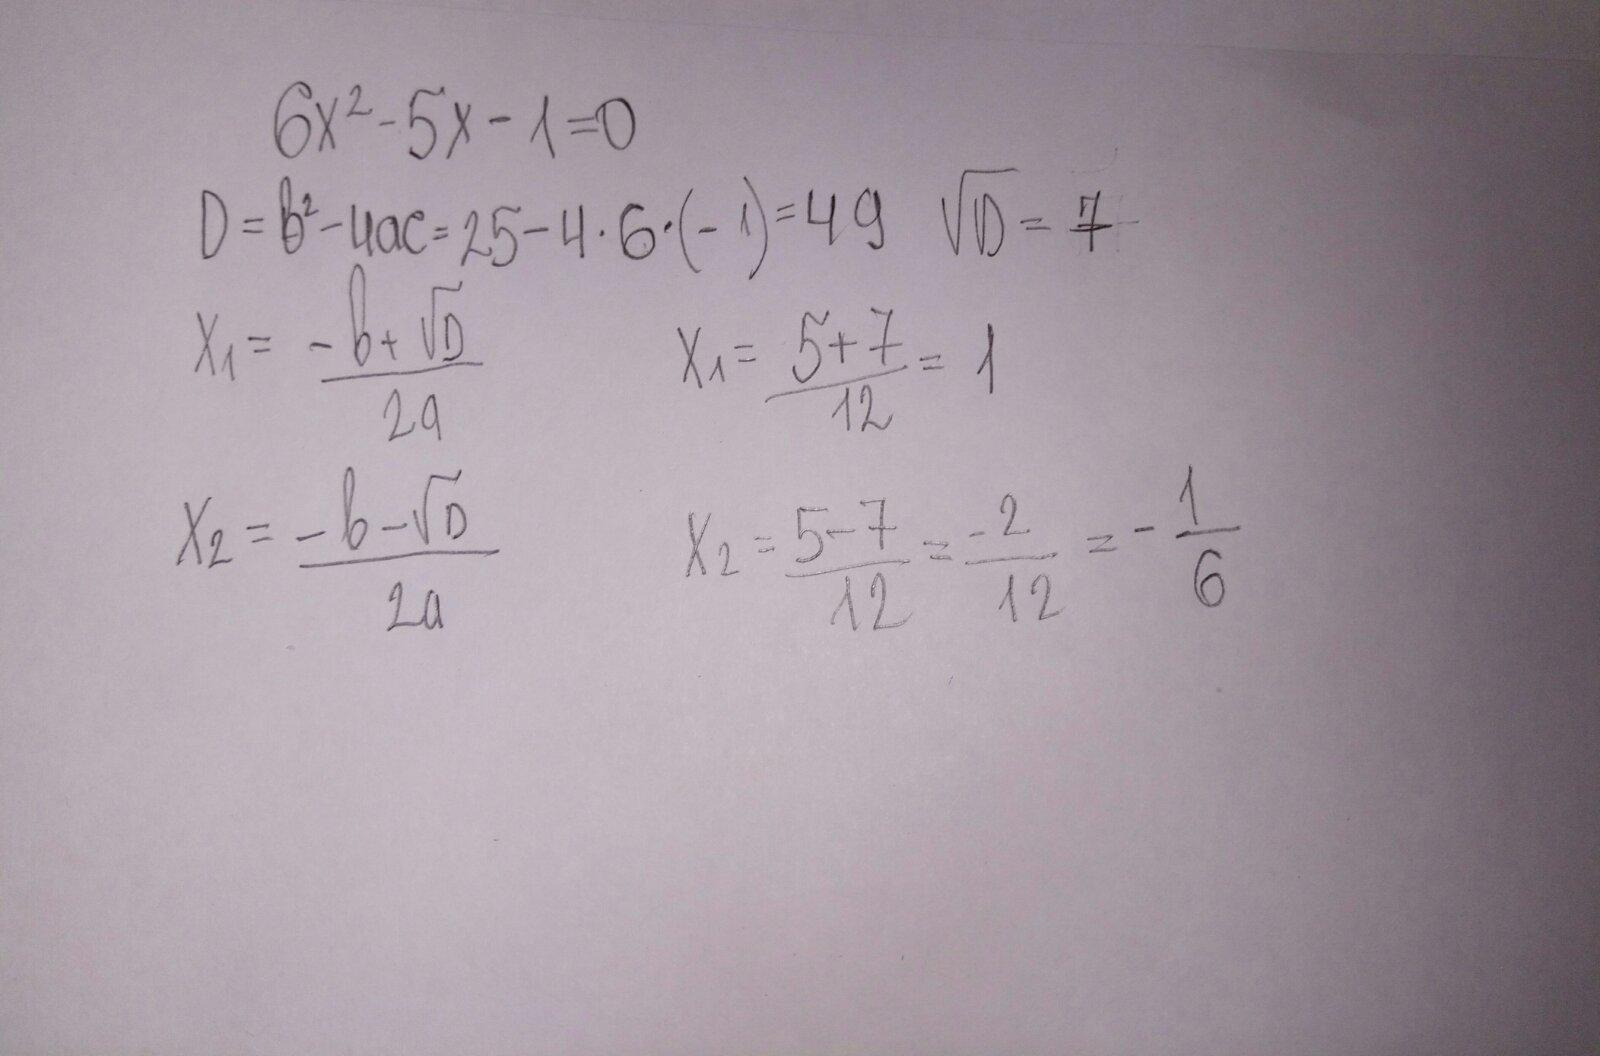 6x² - 5x - 1 = 0
D = b² - 4ac = 25 - 4 · 6 · (-1) = 49 √D = 7
x₁ = (-b + √D) / 2a x₁ = (5 + 7) / 12 = 1
x₂ = (-b - √D) / 2a x₂ = (5 - 7) / 12 = -2 / 12 = - 1 / 6